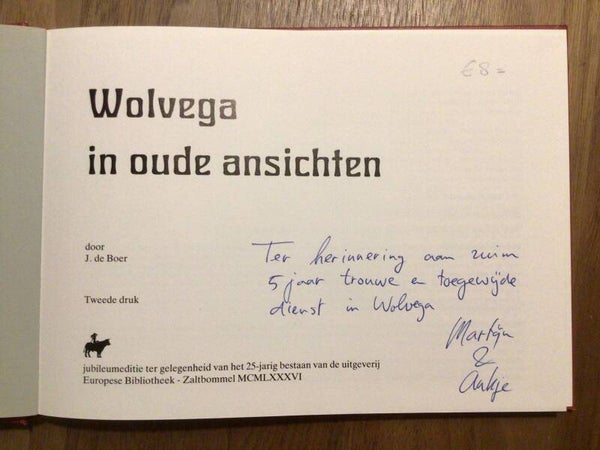 € 8 =
Wolvega
in oude ansichten
door
J. de Boer
Ter herinnering aan ruim
5 jaar trouwe en toegewijde
dienst in Wolvega
Tweede druk
Martijn
&
Aukje
jubileumeditie ter gelegenheid van het 25-jarig bestaan van de uitgeverij
Europese Bibliotheek - Zaltbommel MCMLXXXVI